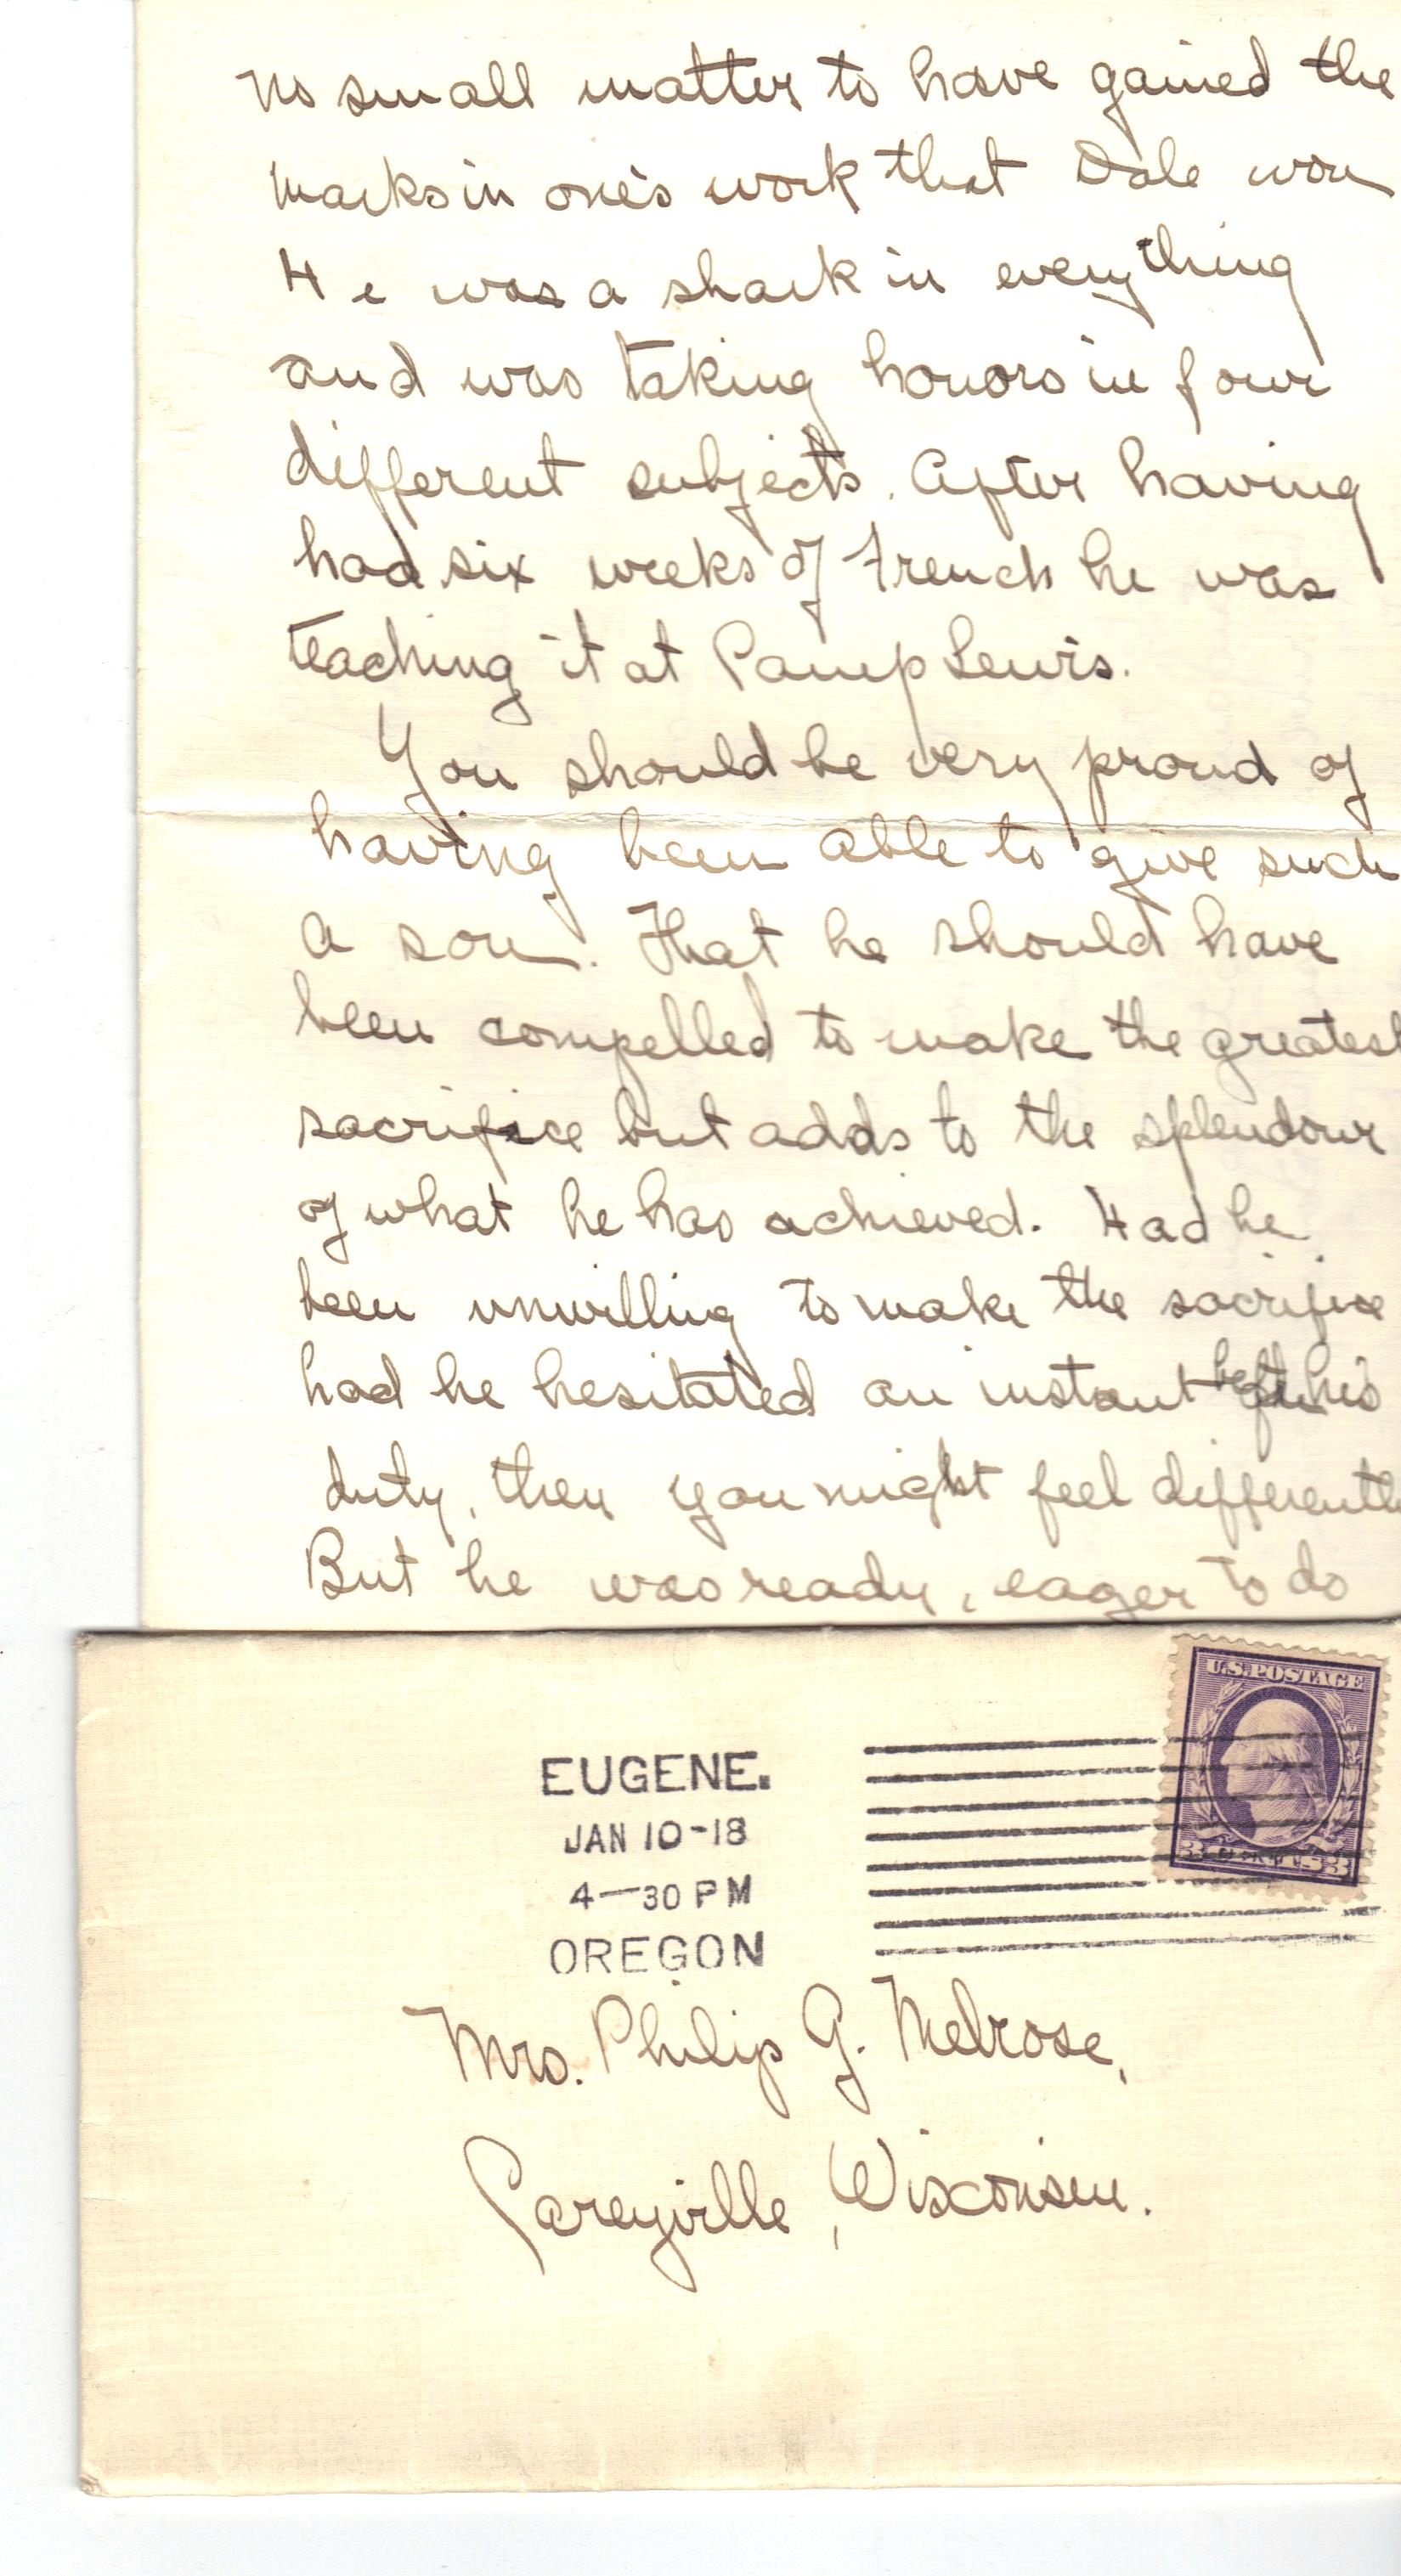 no small matter to have gained the
marks in one's work that Dale won
He was a shark in everything
and was taking honors in four
different subjects. After having
had six weeks of French he was
teaching it at Camp Lewis.
You should be very proud of
having been able to give such
a son. That he should have
been compelled to make the greatest
sacrifice but adds to the splendour
of what he has achieved. Had he
been unwilling to make the sacrifice
had he hesitated an instant before his
duty, then you might feel differently
But he was ready, eager to do
U.S. POSTAGE
3 CENTS 3
EUGENE.
JAN 10-18
4-30 PM
OREGON
Mrs. Philip G. Melrose,
Careyville, Wisconsin.